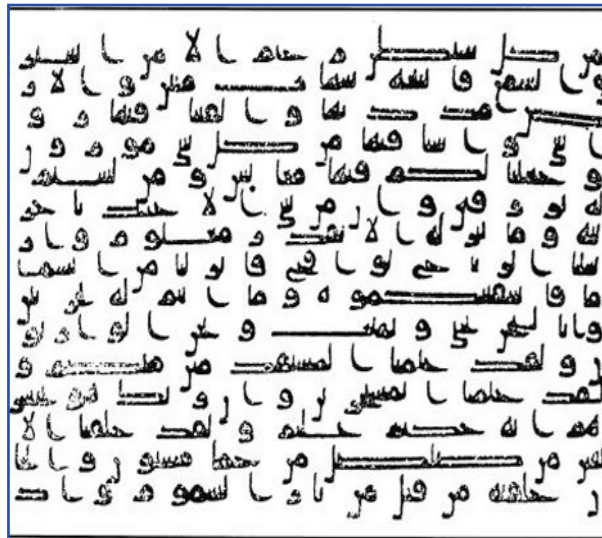 من كل شيطن رجيم الا من استر
ق السمع فاتبعه شهاب مبين والار
ض مددنها والقينا فيها رو
اسي وانبتنا فيها من كل شي موزو
ن وجعلنا لكم فيها معيش ومن لستم
له برزقين وان من شي الا عندنا خز
ئنه وما ننزله الا بقدر معلوم وار
سلنا الريح لوقح فانزلنا من السما
ما فاسقينكموه وما انتم له بخز
نين وانا لنحن نحي ونميت ونحن الور
ثون ولقد علمنا المستقدمين منكم و
لقد علمنا المستخرين وان ربك هو يحشر
هم انه حكيم عليم ولقد خلقنا الا
نسن من صلصل من حما مسنون والجا
ن خلقنه من قبل من نار السموم واذ